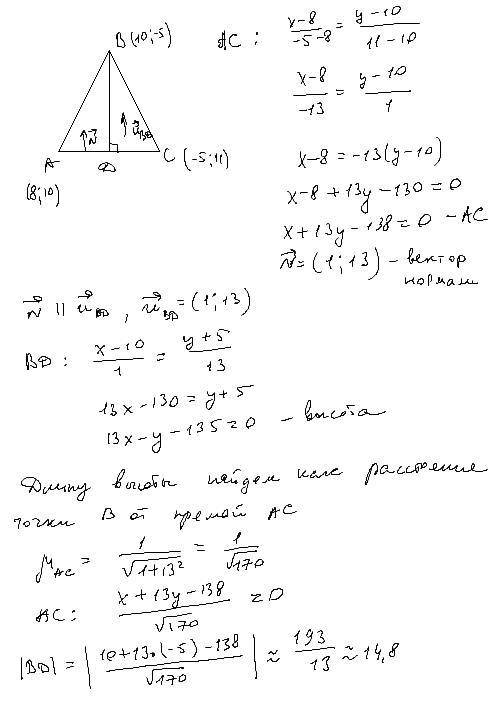 B (10;-5)
AC: \frac{x-8}{-5-8} = \frac{y-10}{11-10}
\frac{x-8}{-13} = \frac{y-10}{1}
\vec{N} \vec{u}_{BD}
A D C (-5;11)
(8;10)
x-8 = -13(y-10)
x-8+13y-130=0
x+13y-138=0 - AC
\vec{N}=(1;13) - вектор
нормали
\vec{N} || \vec{u}_{BD}, \vec{u}_{BD}=(1;13)
BD: \frac{x-10}{1} = \frac{y+5}{13}
13x-130=y+5
13x-y-135=0 - высота
Длину высоты найдем как расстояние
точки B от прямой AC
μ_{AC} = \frac{1}{\sqrt{1+13^2}} = \frac{1}{\sqrt{170}}
AC: \frac{x+13y-138}{\sqrt{170}} = 0
|BD| = |\frac{10+13·(-5)-138}{\sqrt{170}}| ≈ \frac{193}{13} ≈ 14,8